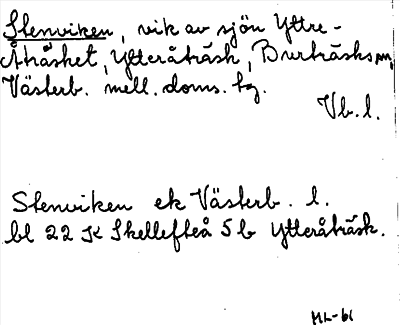 Stenviken, vik av sjön Yttre-
Åträsket, Ytteråträsk, Burträsks sn,
Västerb. mell. doms. tg.
Vb. l.
Stenviken ek Västerb. l.
bl 22 K Skellefteå 5b Ytteråträsk.
ML-61